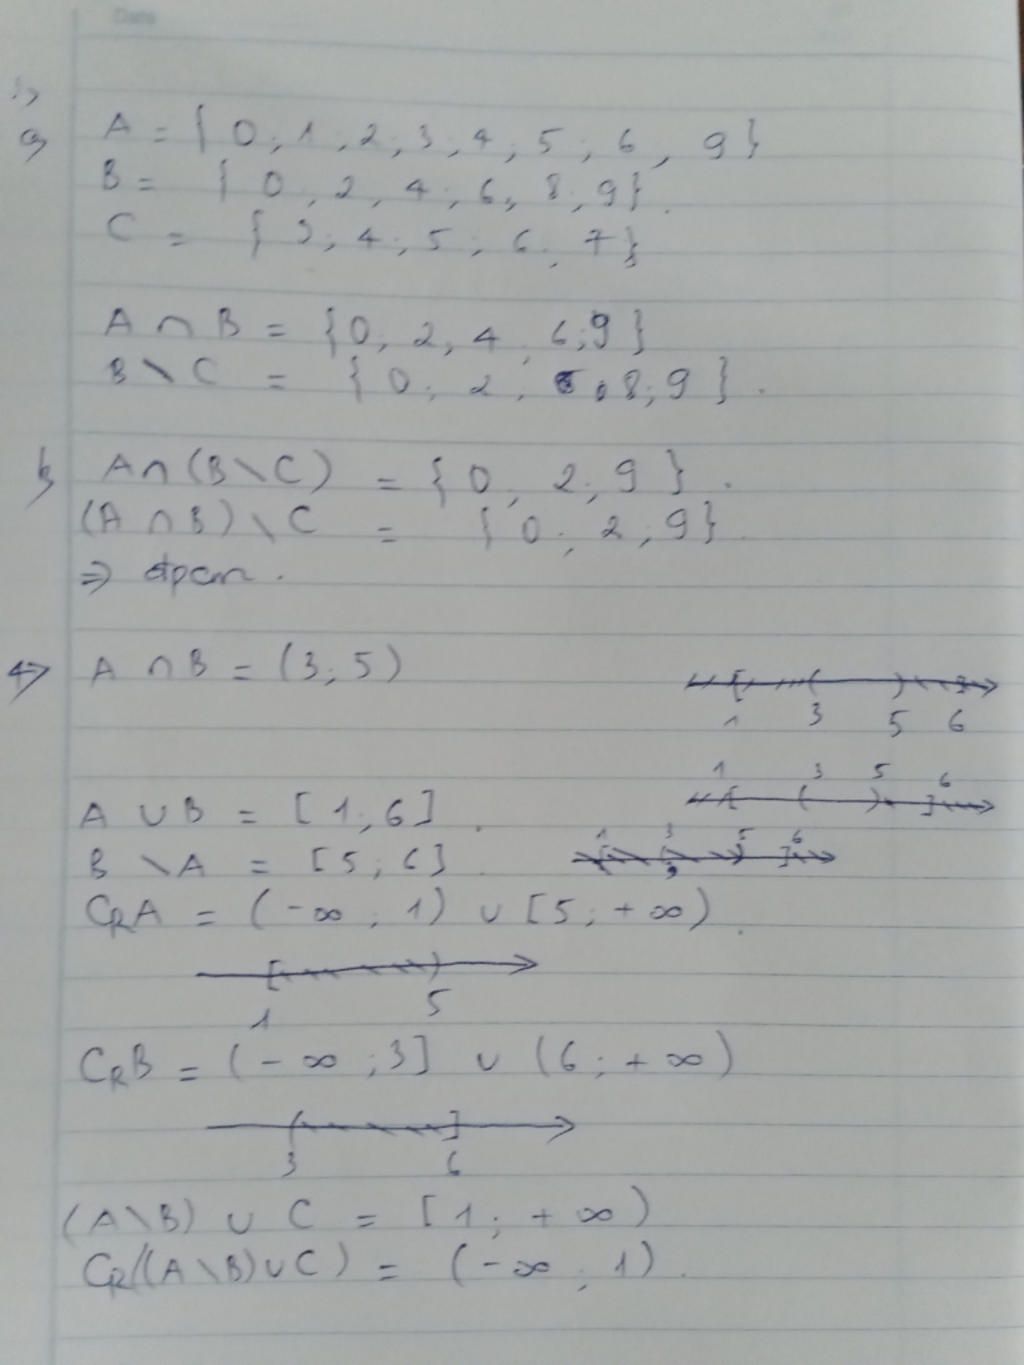 Date
1>
a> A = { 0 ; 1 ; 2 ; 3 ; 4 ; 5 ; 6 , 9 }
B = { 0 , 2 , 4 ; 6 , 8 , 9 } .
C = { 3 ; 4 ; 5 ; 6 ; 7 }
A ∩ B = { 0 ; 2 , 4 , 6 ; 9 }
B \ C = { 0 ; 2 ; 8 ; 9 } .
b> A ∩ (B \ C) = { 0 , 2 ; 9 } .
(A ∩ B) \ C = { 0 ; 2 , 9 } .
⇒ đpcm .
4> A ∩ B = (3 ; 5)
1 3 5 6
1 3 5 6
A ∪ B = [1 ; 6] .
1 3 5 6
3
B \ A = [5 ; 6] .
CRA = (-∞ ; 1) ∪ [5 ; +∞) .
1 5
CRB = (-∞ ; 3] ∪ (6 ; +∞)
3 6
(A \ B) ∪ C = [1 ; +∞)
CR((A \ B) ∪ C) = (-∞ ; 1) .